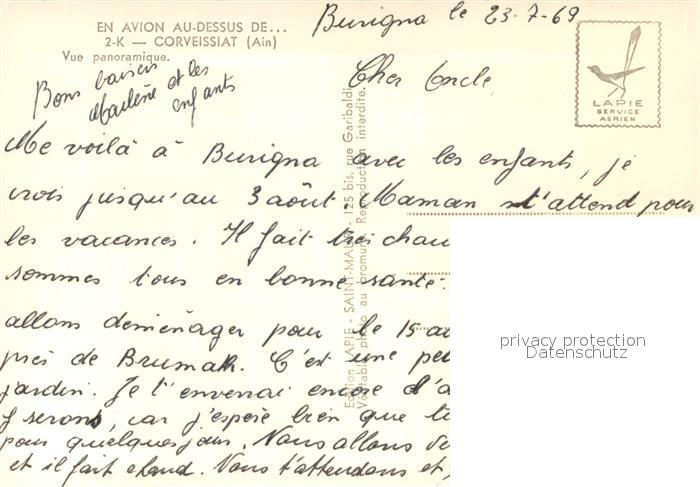 EN AVION AU-DESSUS DE...
2-K — CORVEISSIAT (Ain)
Vue panoramique.
Burigna le 23-7-69
LAPIE
SERVICE
AERIEN
Bons baisers
Marlène et les
enfants
Cher Oncle,
Me voilà à Burigna avec les enfants, je
crois jusqu'au 3 août. Maman t'attend pour
les vacances. Il fait très chau
sommes tous en bonne santé.
allons déménager pour le 15 ao
près de Brumath. C'est une pe
jardin. Je t'enverrai encore d'a
y serons, car j'espère bien que t
pour quelques jours. Nous allons
et il fait chaud. Nous t'attendons et
Edition LAPIE - SAINT-MAUR - 125 bis, rue Garibaldi
Véritable photo au bromure - Reproduction interdite.
privacy protection
Datenschutz